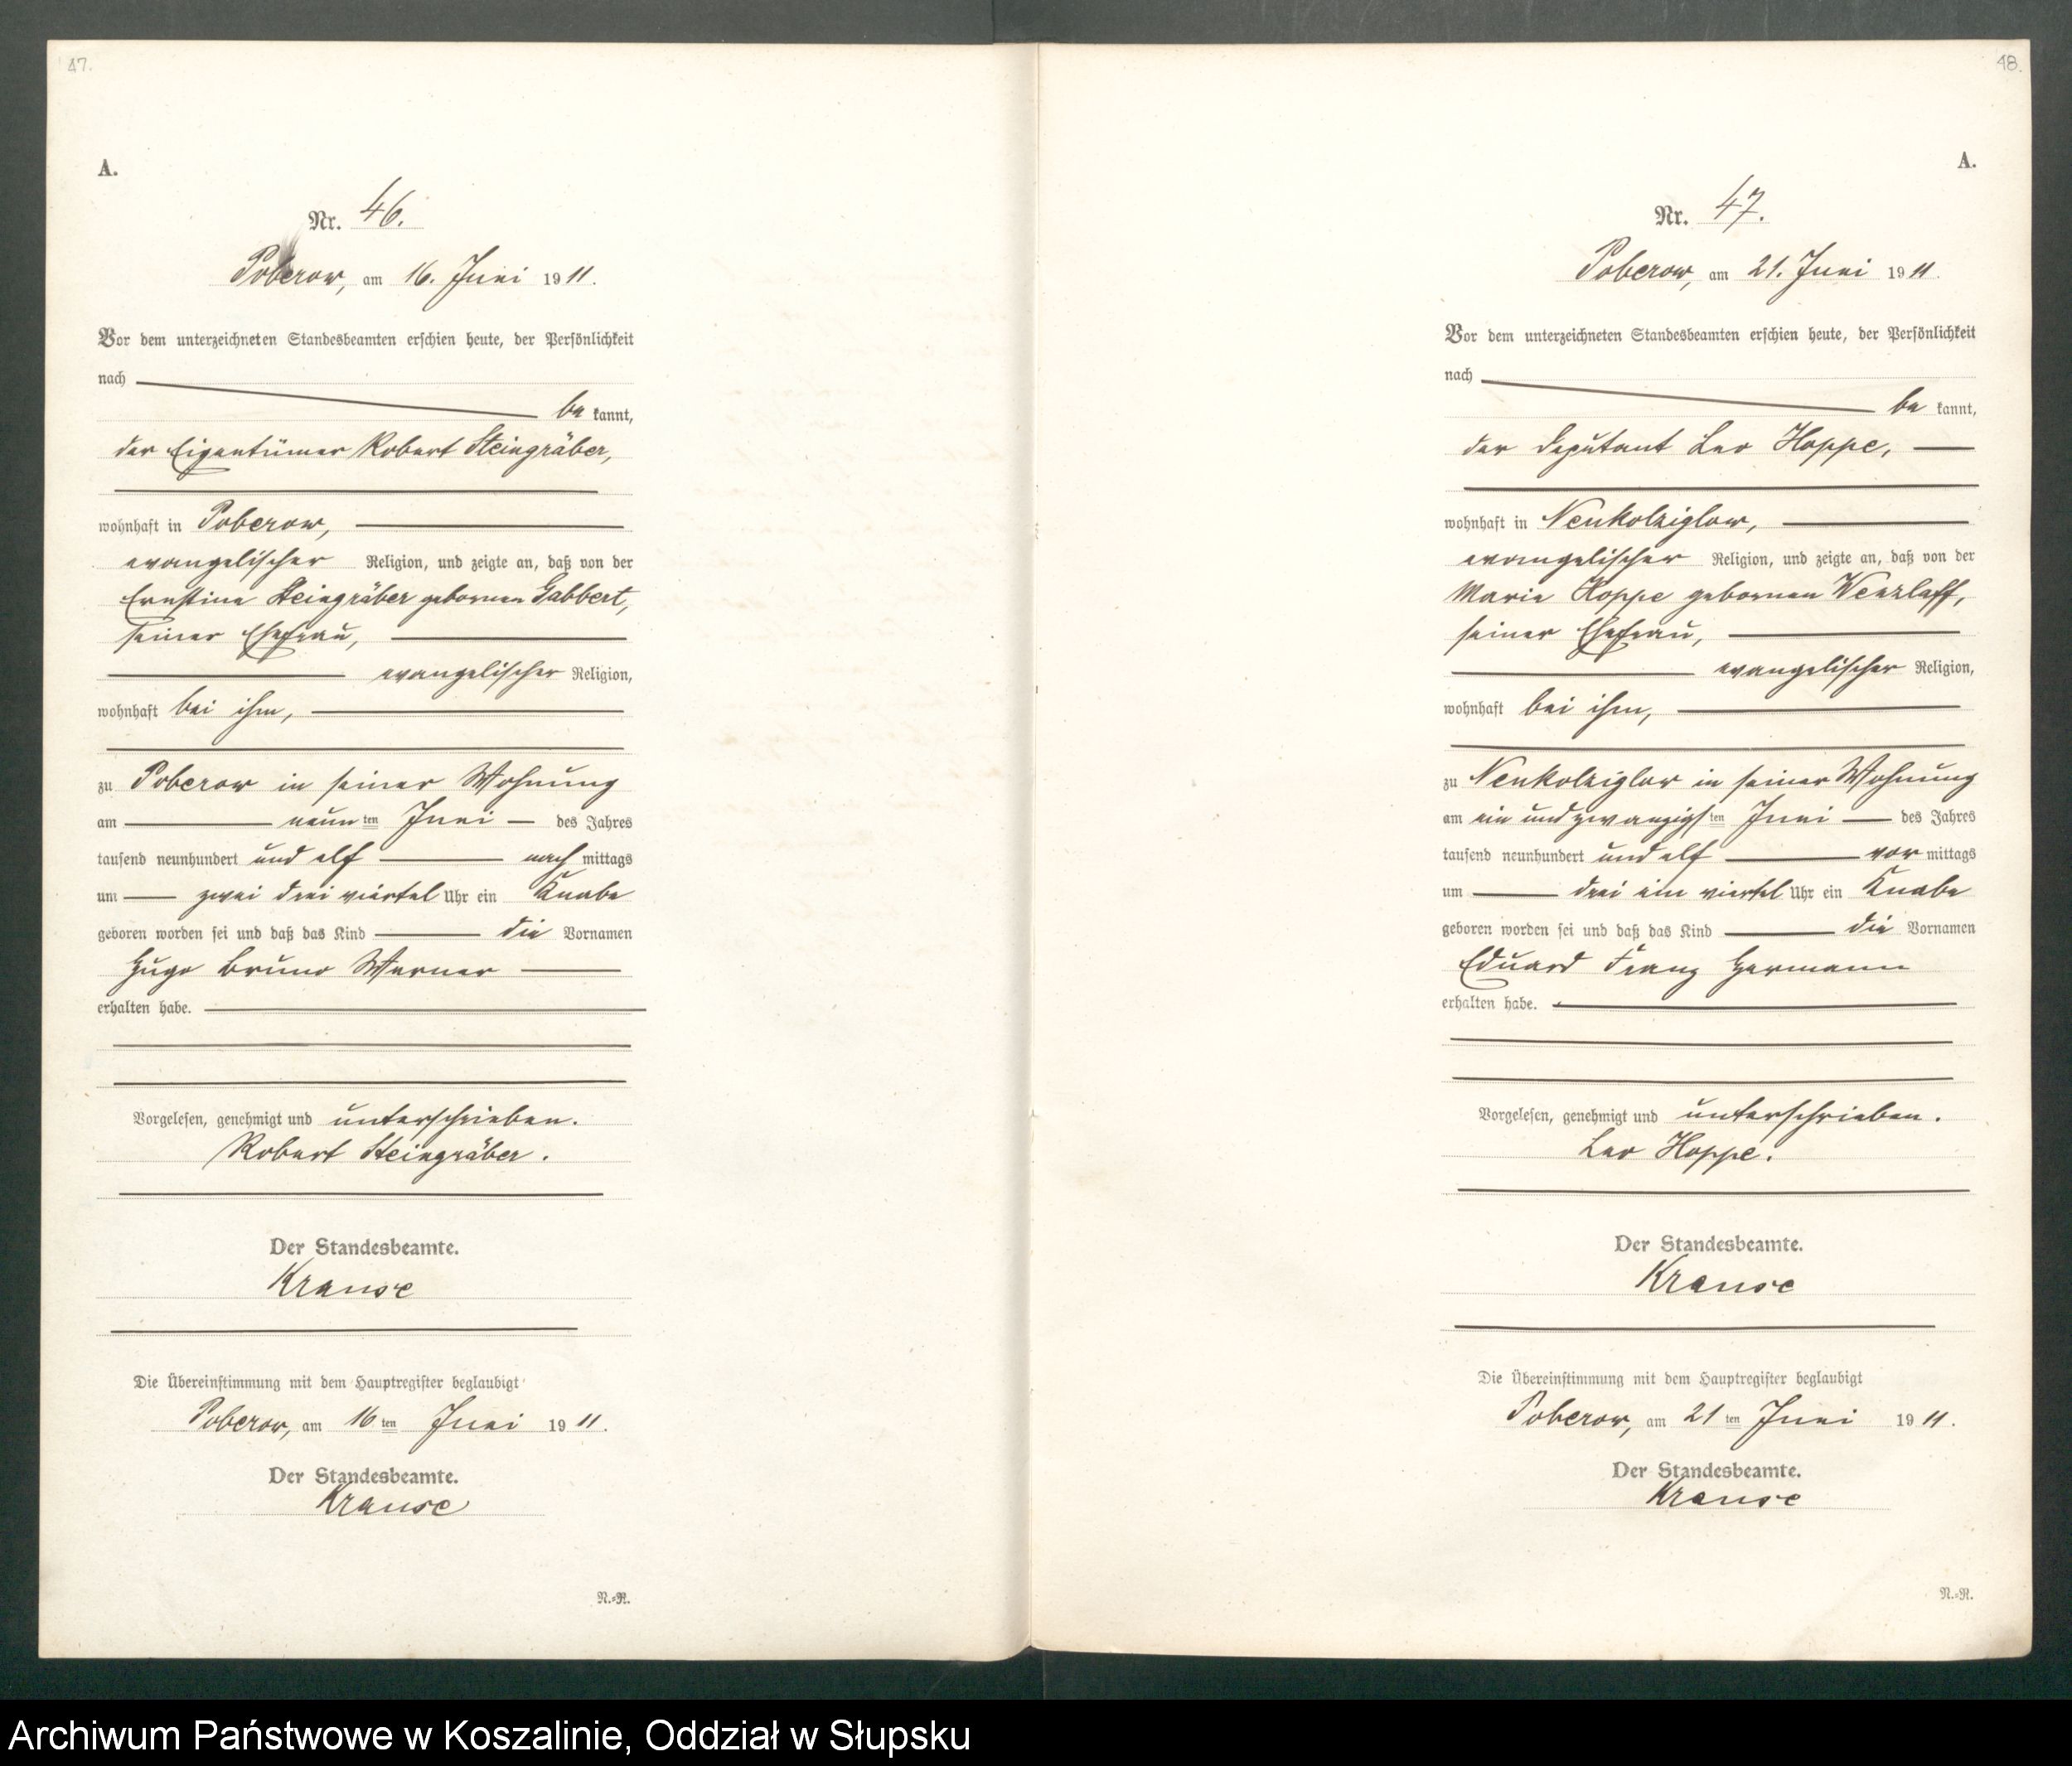 47.
A.
Nr. 46.
Poberow, am 16. Juni 1911.
Vor dem unterzeichneten Standesbeamten erschien heute, der Persönlichkeit
nach
be kannt,
der Eigentümer Robert Steingräber,
wohnhaft in Poberow,
evangelischer Religion, und zeigte an, daß von der
Ernstine Steingräber gebornen Gabbert,
seiner Ehefrau,
evangelischer Religion,
wohnhaft bei ihm,
zu Poberow in seiner Wohnung
am neun ten Juni des Jahres
tausend neunhundert und elf nach mittags
um zwei drei viertel Uhr ein Knabe
geboren worden sei und daß das Kind die Vornamen
Hugo Bruno Werner
erhalten habe.
Vorgelesen, genehmigt und unterschrieben.
Robert Steingräber.
Der Standesbeamte.
Krause
Die Übereinstimmung mit dem Hauptregister beglaubigt
Poberow, am 16 ten Juni 1911.
Der Standesbeamte.
Krause
N.=R.
48.
A.
Nr. 47.
Poberow, am 21. Juni 1911.
Vor dem unterzeichneten Standesbeamten erschien heute, der Persönlichkeit
nach
be kannt,
der Deputant Leo Hoppe,
wohnhaft in Neukolziglow,
evangelischer Religion, und zeigte an, daß von der
Marie Hoppe gebornen Wenzlaff,
seiner Ehefrau,
evangelischer Religion,
wohnhaft bei ihm,
zu Neukolziglow in seiner Wohnung
am ein und zwanzigs ten Juni des Jahres
tausend neunhundert und elf vor mittags
um drei ein viertel Uhr ein Knabe
geboren worden sei und daß das Kind die Vornamen
Eduard Franz Hermann
erhalten habe.
Vorgelesen, genehmigt und unterschrieben.
Leo Hoppe.
Der Standesbeamte.
Krause
Die Übereinstimmung mit dem Hauptregister beglaubigt
Poberow, am 21 ten Juni 1911.
Der Standesbeamte.
Krause
N.=R.
Archiwum Państwowe w Koszalinie, Oddział w Słupsku